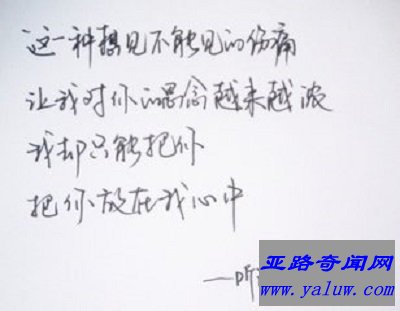 这一种想见不能见的伤痛
让我对你的思念越来越浓
我却只能把你
把你放在我心中
——听
亚路奇闻网
www.yaluw.com